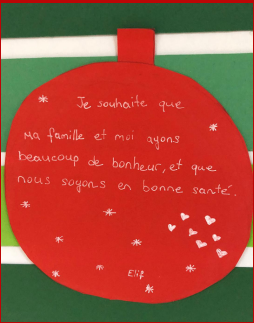 Je souhaite que
Ma famille et moi ayons
beaucoup de bonheur, et que
nous soyons en bonne santé.
Elif